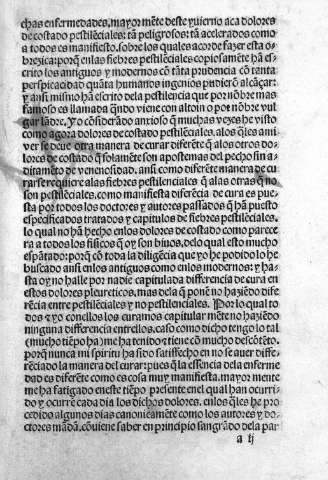 chas enfermedades, mayor mẽte deste yuierno aca dolores
de costado pestilẽciales: tã peligrosos: tã acelerados como
a todos es manifiesto. sobre los quales acorde fazer esta o-
brezica: porq̃ enlas fiebres pestilẽciales copiosamẽte hã es-
crito los antiguos y modernos cõ tãta prudencia cõ tanta
perspicacidad quãta humanos ingenios pudierõ alcãçar:
y ansi mismo hã escrito dela pestilencia que por nõbre mas
famoso es llamada quãdo viene con altoin o por nõbre vul
gar lãdre. Yo cõsiderãdo anxioso q̃ muchas vezes he visto
como agora dolores de costado pestilẽciales. alos q̃les a mi
ver se deue otra manera de curar diferẽte q̃ alos otros do-
lores de costado q̃ solamẽte son apostemas del pecho sin a-
ditamẽto de venenosidad. ansi como diferẽte manera de cu-
rarse requiere alas fiebres pestilenciales q̃ alas otras q̃ no
son pestilẽciales. como manifiesta diferẽcia de cura es pue-
sta por todos los doctores y autores passados q̃ hã puesto
especificados tratados y capitulos de fiebres pestilẽciales.
lo qual no hã hecho enlos dolores de costado como parece
ra a todos los fisicos q̃ oy son biuos. delo qual esto mucho
espãtado: porq̃ cõ toda la diligẽcia que yo he podido lo he
buscado ansi enlos antiguos como enlos modernos: y ha-
sta oy no halle por nadie capitulada differẽcia de cura en
estos dolores pleureticos. mas dela q̃ ponẽ no haziẽdo dife
rẽcia entre pestilẽciales y no pestilenciales. Por lo qual to
dos y yo conellos los curamos capitular mẽte no haziẽdo
ninguna differencia entrellos. caso como dicho tengo lo tal
(mucho tiẽpo ha) me ha tenido & tiene cõ mucho descõtẽto.
porq̃ nunca mi spiritu ha sido satisfecho en no se auer diffe-
rẽciado la manera del curar: pues q̃ la essencia dela enferme
dad es diferẽte como es cosa muy manifiesta. mayor mente
me ha fatigado eneste tiẽpo presente enel qual han ocurri-
do y ocurrẽ cada dia los dichos dolores. enlos q̃les he pro
cedido algunos dias canonicamẽte como los autores y do-
ctores mãdã. cõuiene saber en principio sangrãdo dela par
a ij